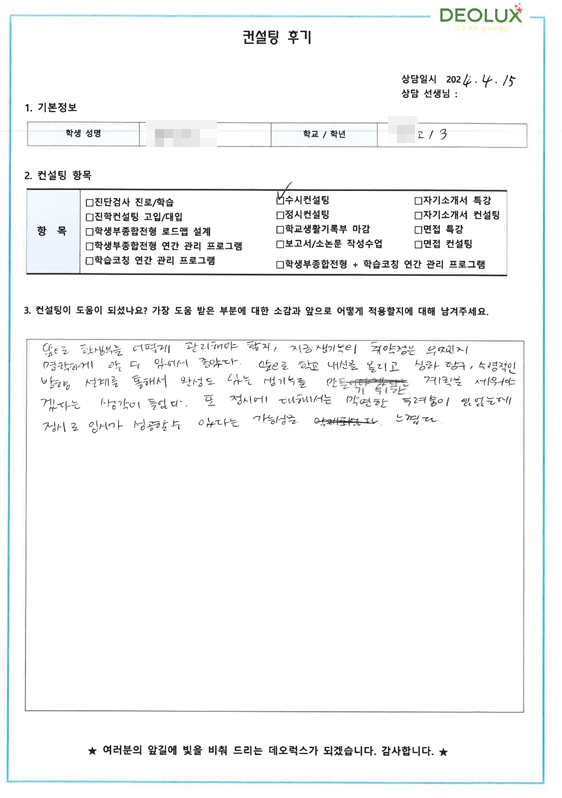 DEOLUX
컨설팅 후기
상담일시 2024.4.15
상담 선생님 :
1. 기본정보
학생 성명 학교 / 학년 고 / 3
2. 컨설팅 항목
항 목
□진단검사 진로/학습 ☑수시컨설팅 □자기소개서 특강
□진학컨설팅 고입/대입 □정시컨설팅 □자기소개서 컨설팅
□학생부종합전형 로드맵 설계 □학교생활기록부 마감 □면접 특강
□학생부종합전형 연간 관리 프로그램 □보고서/소논문 작성수업 □면접 컨설팅
□학습코칭 연간 관리 프로그램 □학생부종합전형 + 학습코칭 연간 관리 프로그램
3. 컨설팅이 도움이 되셨나요? 가장 도움 받은 부분에 대한 소감과 앞으로 어떻게 적용할지에 대해 남겨주세요.
앞으로 학생부를 어떻게 관리해야 할지, 지금 생기부의 취약점은 무엇인지
명확하게 알 수 있어서 좋았다. 앞으로 학교 내신을 올리고 심화 탐구, 수평적인
방향 설계를 통해서 완성도 있는 생기부를 만들기 위한 계획을 세워야
겠다는 생각이 들었다. 또 정시에 대해서는 막연한 두려움이 있었는데
정시로 입시가 성공할 수 있다는 가능성을 느꼈다.
★ 여러분의 앞길에 빛을 비춰 드리는 데오럭스가 되겠습니다. 감사합니다. ★